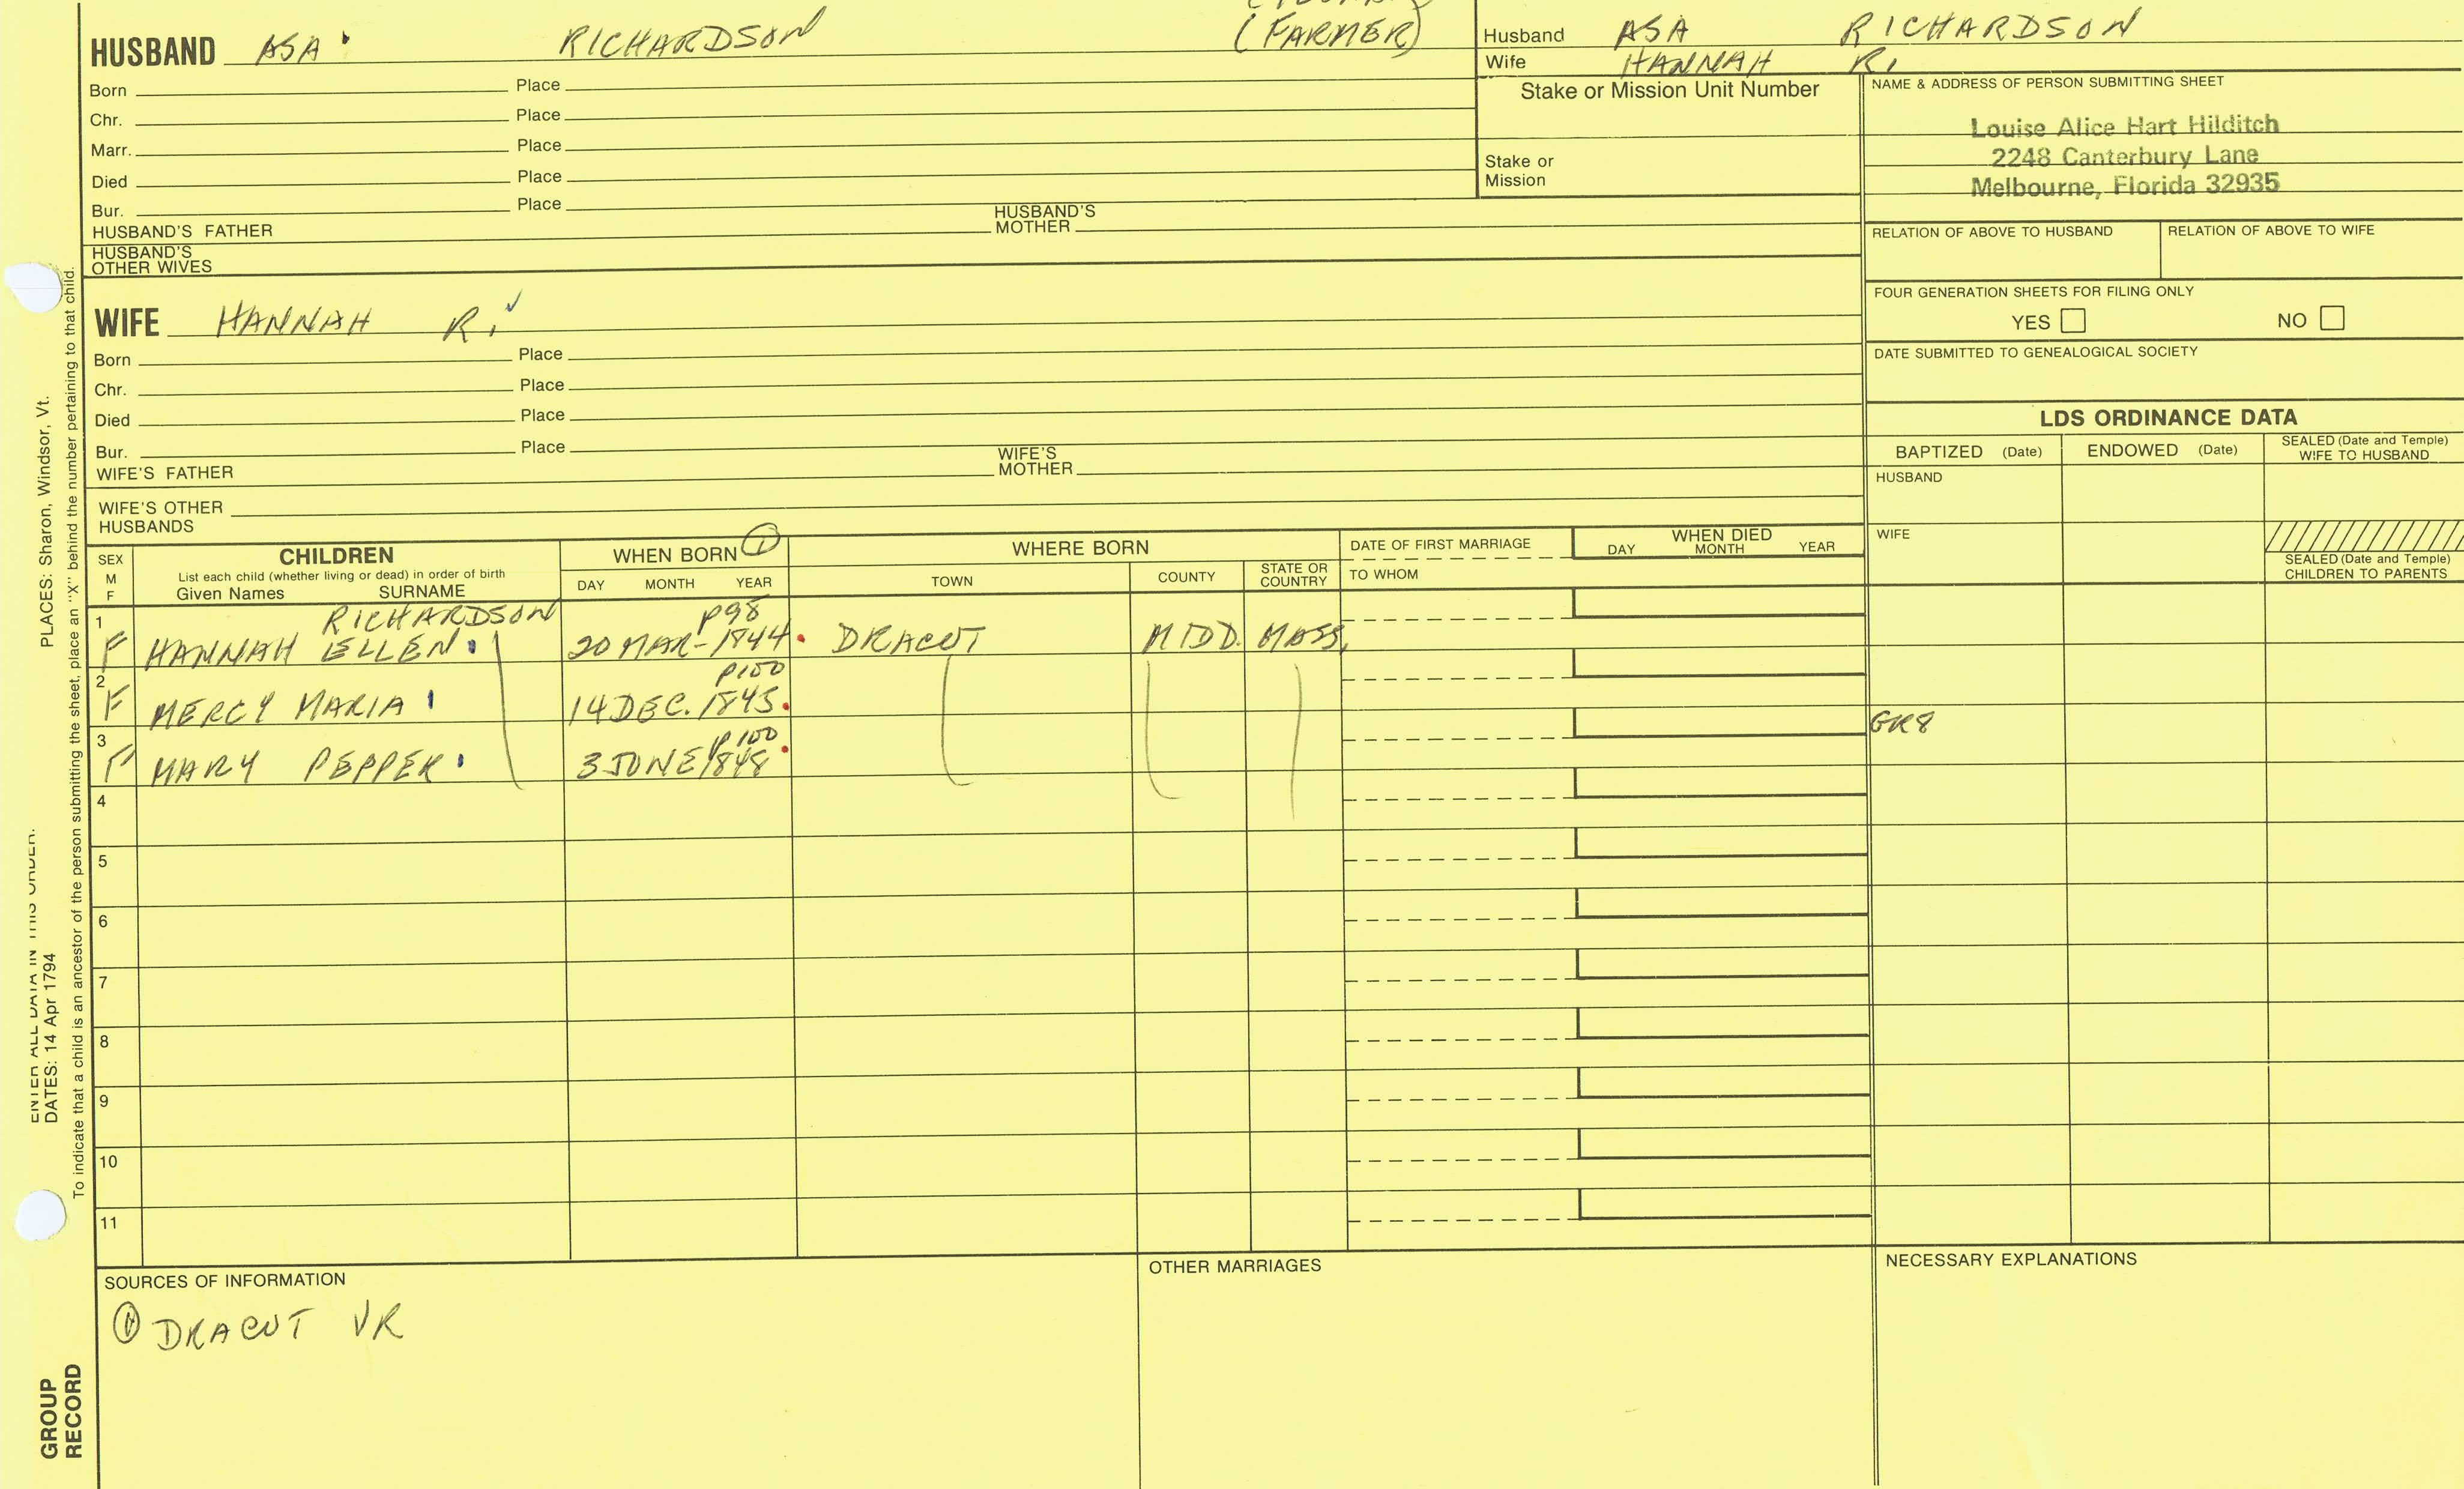 HUSBAND ASA RICHARDSON (FARMER)
Born Place
Chr. Place
Marr. Place
Died Place
Bur. Place
HUSBAND'S FATHER HUSBAND'S MOTHER
HUSBAND'S OTHER WIVES
Husband ASA RICHARDSON
Wife HANNAH R.
Stake or Mission Unit Number
Stake or Mission
NAME & ADDRESS OF PERSON SUBMITTING SHEET
Louise Alice Hart Hilditch
2248 Canterbury Lane
Melbourne, Florida 32935
RELATION OF ABOVE TO HUSBAND RELATION OF ABOVE TO WIFE
FOUR GENERATION SHEETS FOR FILING ONLY
YES NO
DATE SUBMITTED TO GENEALOGICAL SOCIETY
WIFE HANNAH R. ✓
Born Place
Chr. Place
Died Place
Bur. Place
WIFE'S FATHER WIFE'S MOTHER
WIFE'S OTHER HUSBANDS
LDS ORDINANCE DATA
BAPTIZED (Date) ENDOWED (Date) SEALED (Date and Temple) WIFE TO HUSBAND
HUSBAND
WIFE
SEALED (Date and Temple) CHILDREN TO PARENTS
SEX M F
CHILDREN
List each child (whether living or dead) in order of birth
Given Names SURNAME
WHEN BORN ①
DAY MONTH YEAR
WHERE BORN
TOWN COUNTY STATE OR COUNTRY
DATE OF FIRST MARRIAGE
TO WHOM
WHEN DIED
DAY MONTH YEAR
RICHARDSON P98
1 F HANNAH ELLEN 20 MAR-1844 DRACUT MIDD. MASS.
P100
2 F MERCY MARIA 14 DEC. 1845
GR8
P100
3 F MARY PEPPER 3 JUNE 1848
4
5
6
7
8
9
10
11
SOURCES OF INFORMATION
① DRACUT VR
OTHER MARRIAGES
NECESSARY EXPLANATIONS
PLACES: Sharon, Windsor, Vt.
ENTER ALL DATA IN THIS ORDER:
DATES: 14 Apr 1794
To indicate that a child is an ancestor of the person submitting the sheet, place an "X" behind the number pertaining to that child.
GROUP
RECORD